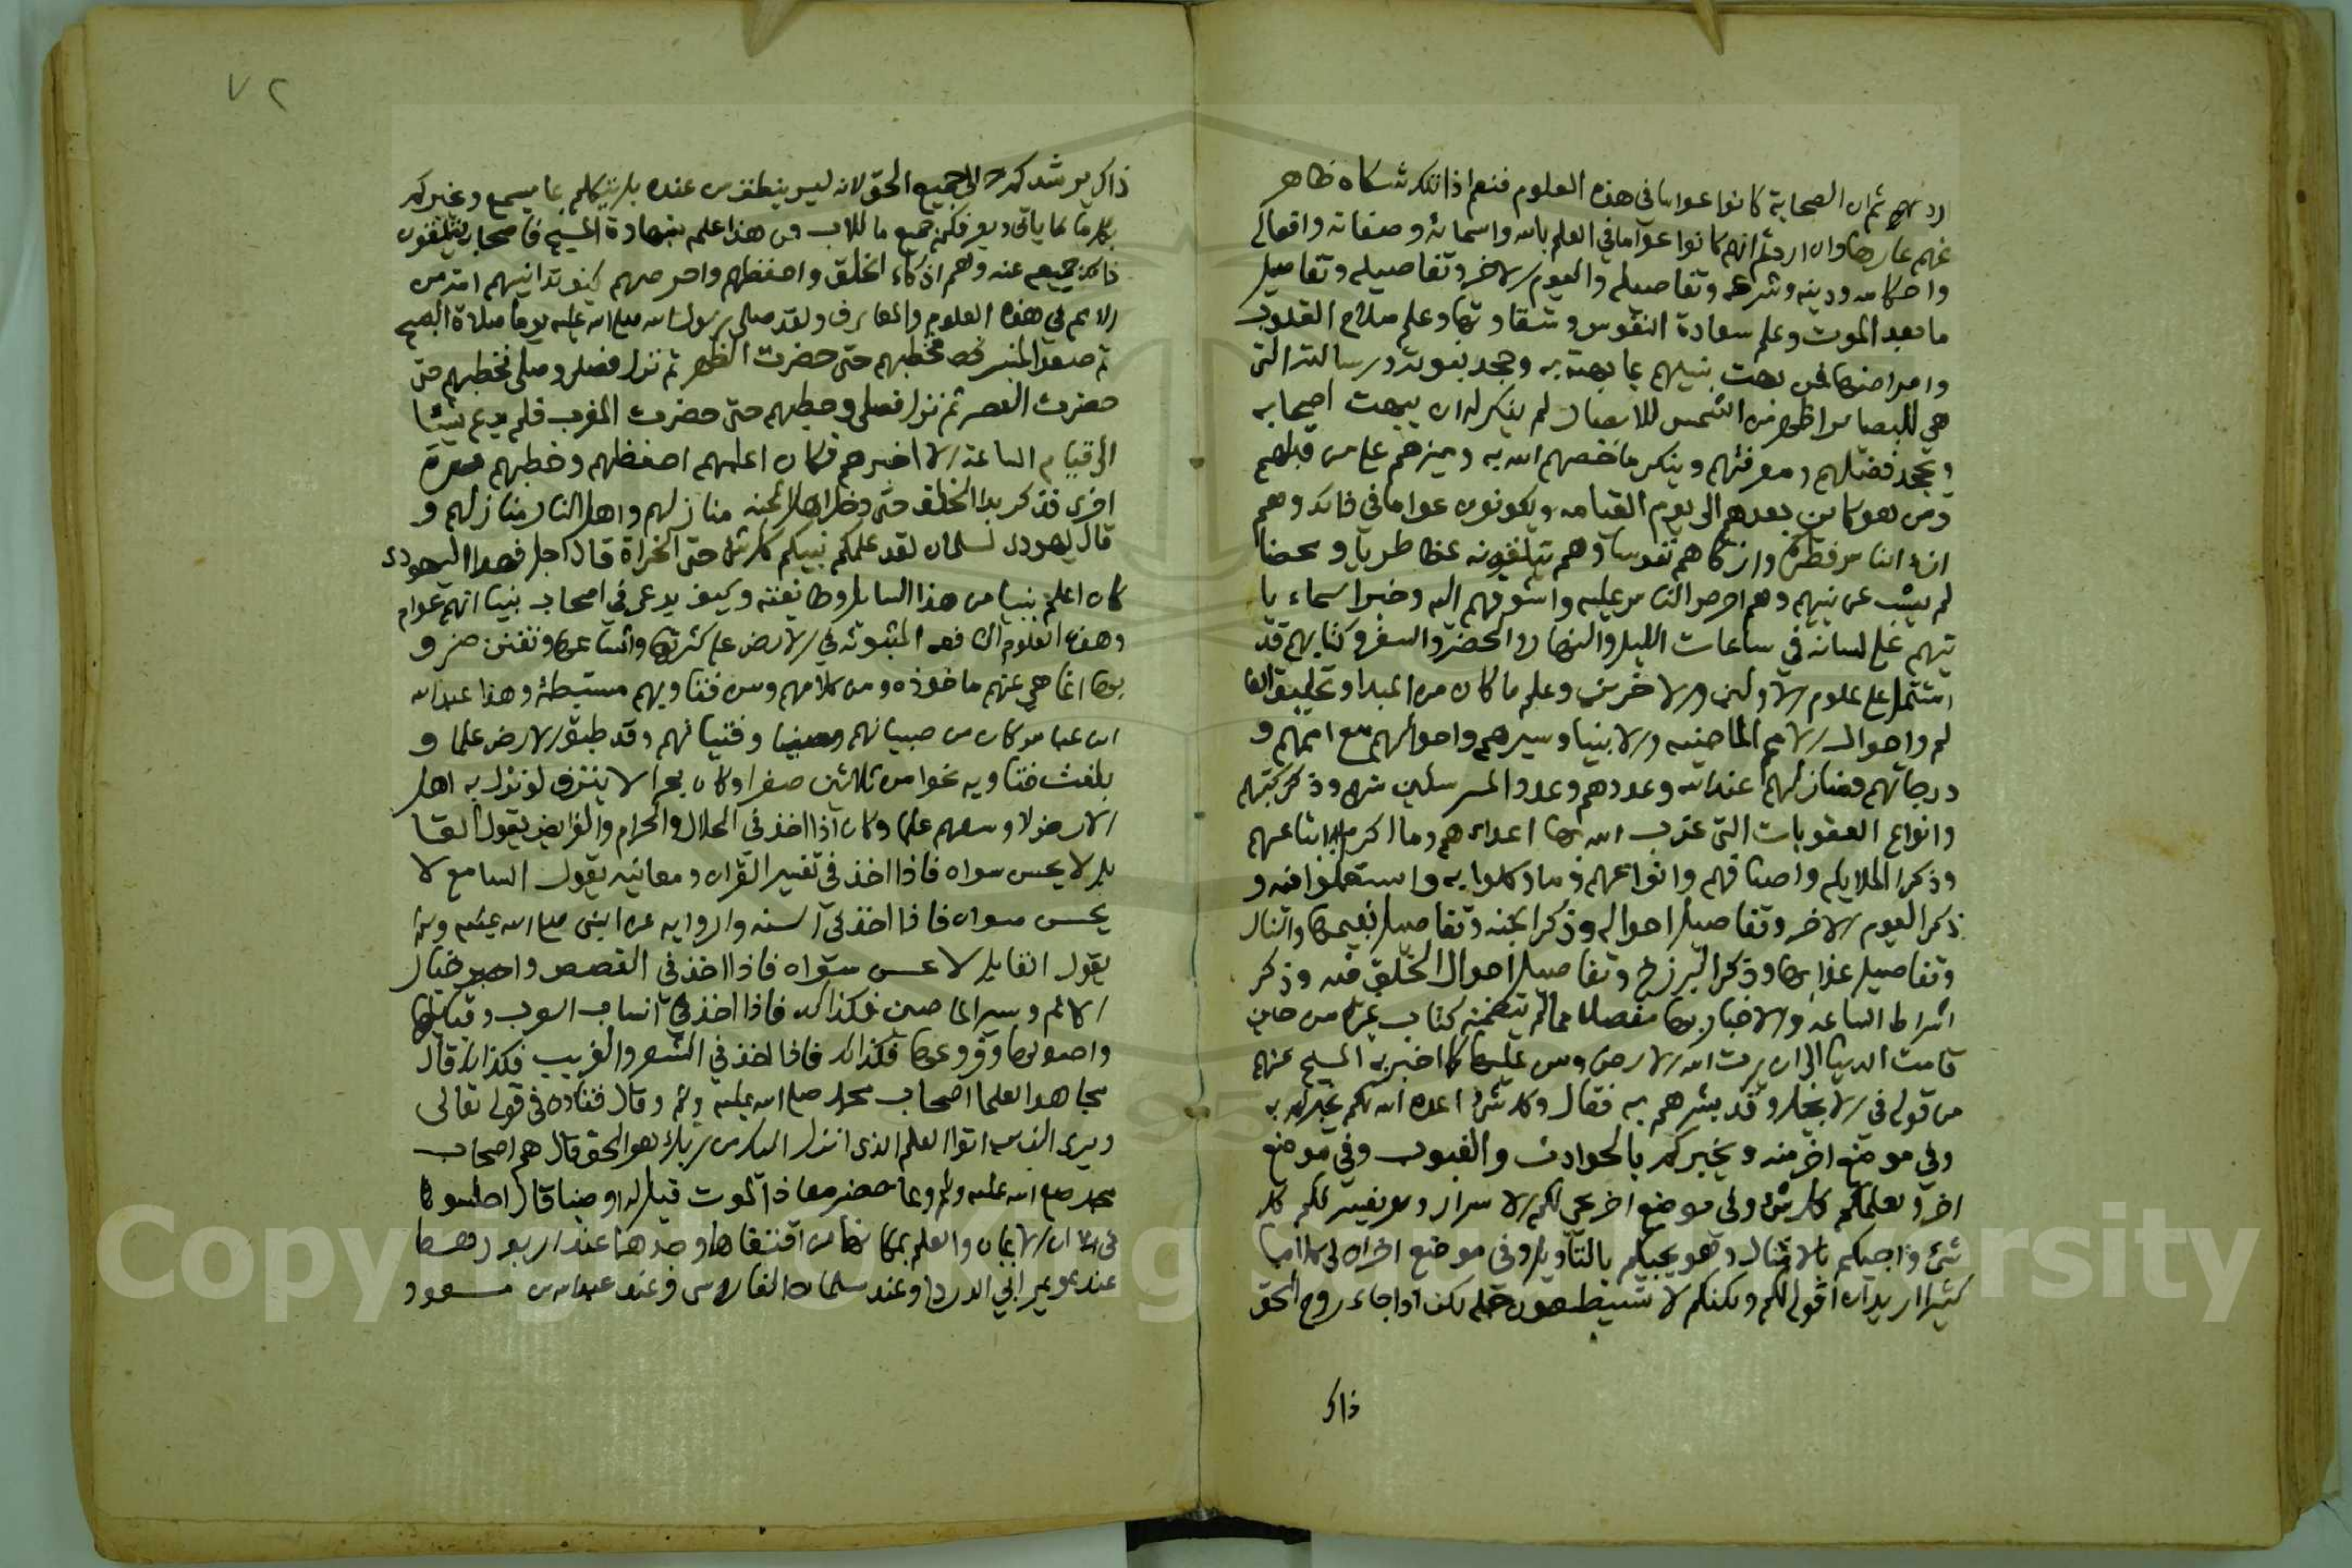 اردتم ان الصحابة كانوا عواما في هذه العلوم فنعم اذا تلك شكاة ظاهر
عنهم عارها وان اردتم انهم كانوا عواما في العلم بالله واسمائه وصفاته وافعاله
واحكامه ودينه وشرعه وتفاصيله واليوم الاخر وتفاصيله وتفاصيل
ما بعد الموت وعلم سعادة النفوس وشقاوتها وعلم صلاح القلوب
وامراضها فمن بهت نبيهم بما بهته به وجحد نبوته ورسالته التي
هي للبصاير اظهر من الشمس للابصار لم ينكر له ان يبهت اصحابه
ويجحد فضلهم ومعرفتهم وينكر ما خصهم الله به وميزهم على من قبلهم
ومن هو كاين بعدهم الى يوم القيامه ويكونون عواما في ذلك وهم
الناس فطرة وازكاهم نفوسا وهم يتلقونه غضا طريا ومحضا
لم يشب عن نبيهم وهم احرص الناس عليه واشوقهم اليه وخبر السماء يا
تيهم على لسانه في ساعات الليل والنهار والحضر والسفر وكتابهم قد
اشتمل على علوم الاولين والاخرين وعلم ما كان من المبدا وتخليق العا
لم واحوال الامم الماضيه والانبيا وسيرهم واحوالهم مع اممهم و
درجاتهم ومنازلهم عند الله وعددهم وعدد المرسلين منهم وذكر كتبهم
وانواع العقوبات التي عذب الله بها اعداءهم وما اكرم به اتباعهم
وذكر الملايكه واصنافهم وانواعهم وما وكلوا به واستعملوا فيه و
ذكر اليوم الاخر وتفاصيل احواله وذكر الجنه وتفاصيل نعيمها والنار
وتفاصيل عذابها وذكر البرزخ وتفاصيل احوال الخلق فيه وذكر
اشراط الساعه والاخبار بها مفصلا مما لم يتضمنه كتاب غيره من حين
قامت الدنيا الى ان يرث الله الارض ومن عليها كما اخبر به المسيح عنهم
من قوله في الانجيل وقد بشرهم به فقال وكل شئ اعده الله لكم يخبركم به
وفي موضع اخر منه ويخبركم بالحوادث والغيوب وفي موضع
اخر ويعلمكم كل شئ وفي موضع اخر يحي لكم الاسرار ويفسر لكم كل
شئ واجيكم بالامثال وهو يجيكم بالتاويل وفي موضع اخر ان لي كلاما
كثيرا اريد ان اقوله لكم ولكنكم لا تستطيعون حمله لكن اذا جاء روح الحق
ذاك
٧٢
ذاك يرشدكم الى جميع الحق لانه ليس ينطق من عنده بل يتكلم بما يسمع ويخبركم
بكل ما ياتي ويعرفكم جميع ما للاب فمن هذا علمه بشهادة المسيح واصحابه يتلقون
ذلك جميعه عنه وهم اذكاء الخلق واحفظهم واحرصهم كيف تدانيهم امة من
الامم في هذه العلوم والمعارف ولقد صلى رسول الله صلى الله عليه يوما صلاة الصبح
ثم صعد المنبر فخطبهم حتى حضرت الظهر ثم نزل فصلى وصلى فخطبهم حتى
حضرت العصر ثم نزل فصلى وخطبهم حتى حضرت المغرب فلم يدع شيئا
الى قيام الساعة الا اخبرهم فكان اعلمهم احفظهم وخطبهم مرة
اخرى فذكر بدا الخلق حتى دخل اهل الجنه منازلهم واهل النار منازلهم و
قال يهودى لسلمان لقد علمكم نبيكم كل شئ حتى الخراة قال اجل فهذا اليهودى
كان اعلم بنبينا من هذا السايل وطايفته وكيف يدعى في اصحاب نبينا انهم عوام
وهذه العلوم النافعه المبثوثه في الارض على كثرتها واتساعها وتفنن ضرو
بها انما هي عنهم ماخوذه ومن كلامهم ومن فتاويهم مستنبطة وهذا عبد الله
ابن عباس كان من صبيانهم وفتيانهم وقد طبق الارض علما و
بلغت فتاويه نحوا من ثلاثين سفرا وكان بحرا لا ينزف لو نزل به اهل
الارض لاوسعهم علما وكان اذا اخذ في الحلال والحرام والفرايض يقول القا
يل لا يحسن سواه فاذا اخذ في تفسير القران ومعانيه يقول السامع لا
يحسن سواه فاذا اخذ في السنه والروايه عن النبي صلى الله عليه وسلم
يقول القايل لا يحسن سواه فاذا اخذ في القصص واخبار
الامم وسير الماضين فكذلك فاذا اخذ في انساب العرب وقبايلها
واصولها وفروعها فكذلك فاذا اخذ في الشعر والغريب فكذلك قال
مجاهد العلما اصحاب محمد صلى الله عليه وسلم وقال قتاده في قوله تعالى
ويرى الذين اوتوا العلم الذى انزل اليك من ربك هو الحق قال هم اصحاب
محمد صلى الله عليه وسلم ولما حضر معاذ الموت قيل له اوصنا قال اجلسوني
ان الايمان والعلم بمكانهما من اقتفاهما وجدهما عند اربعة رهط
عند عويمر ابي الدردا وعند سلمان الفارسى وعند عبدالله بن مسعود